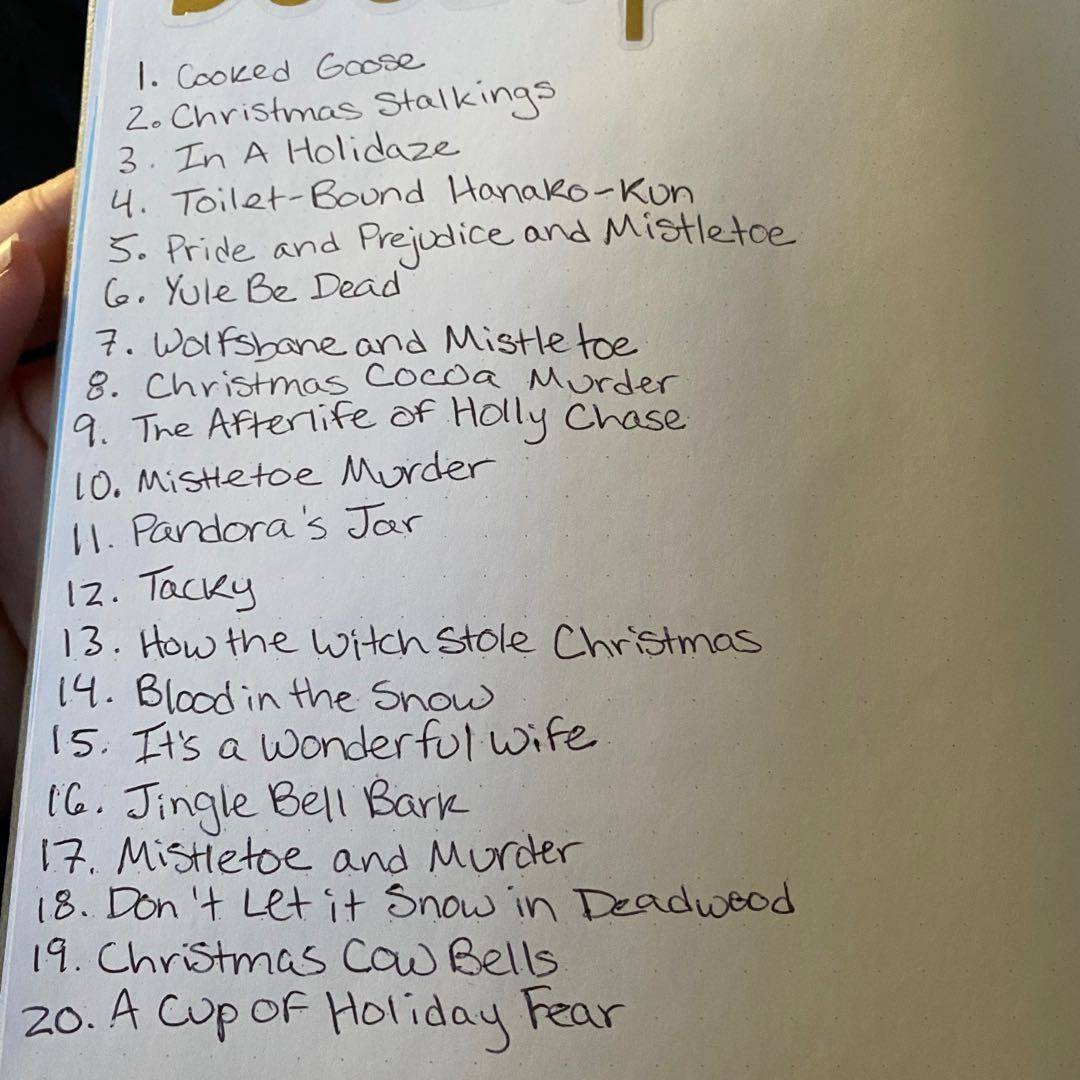 1. Cooked Goose
2. Christmas Stalkings
3. In A Holidaze
4. Toilet-Bound Hanako-Kun
5. Pride and Prejudice and Mistletoe
6. Yule Be Dead
7. Wolfsbane and Mistletoe
8. Christmas Cocoa Murder
9. The Afterlife of Holly Chase
10. Mistletoe Murder
11. Pandora's Jar
12. Tacky
13. How the Witch Stole Christmas
14. Blood in the Snow
15. It's a Wonderful Wife
16. Jingle Bell Bark
17. Mistletoe and Murder
18. Don't Let it Snow in Deadwood
19. Christmas Cow Bells
20. A Cup of Holiday Fear